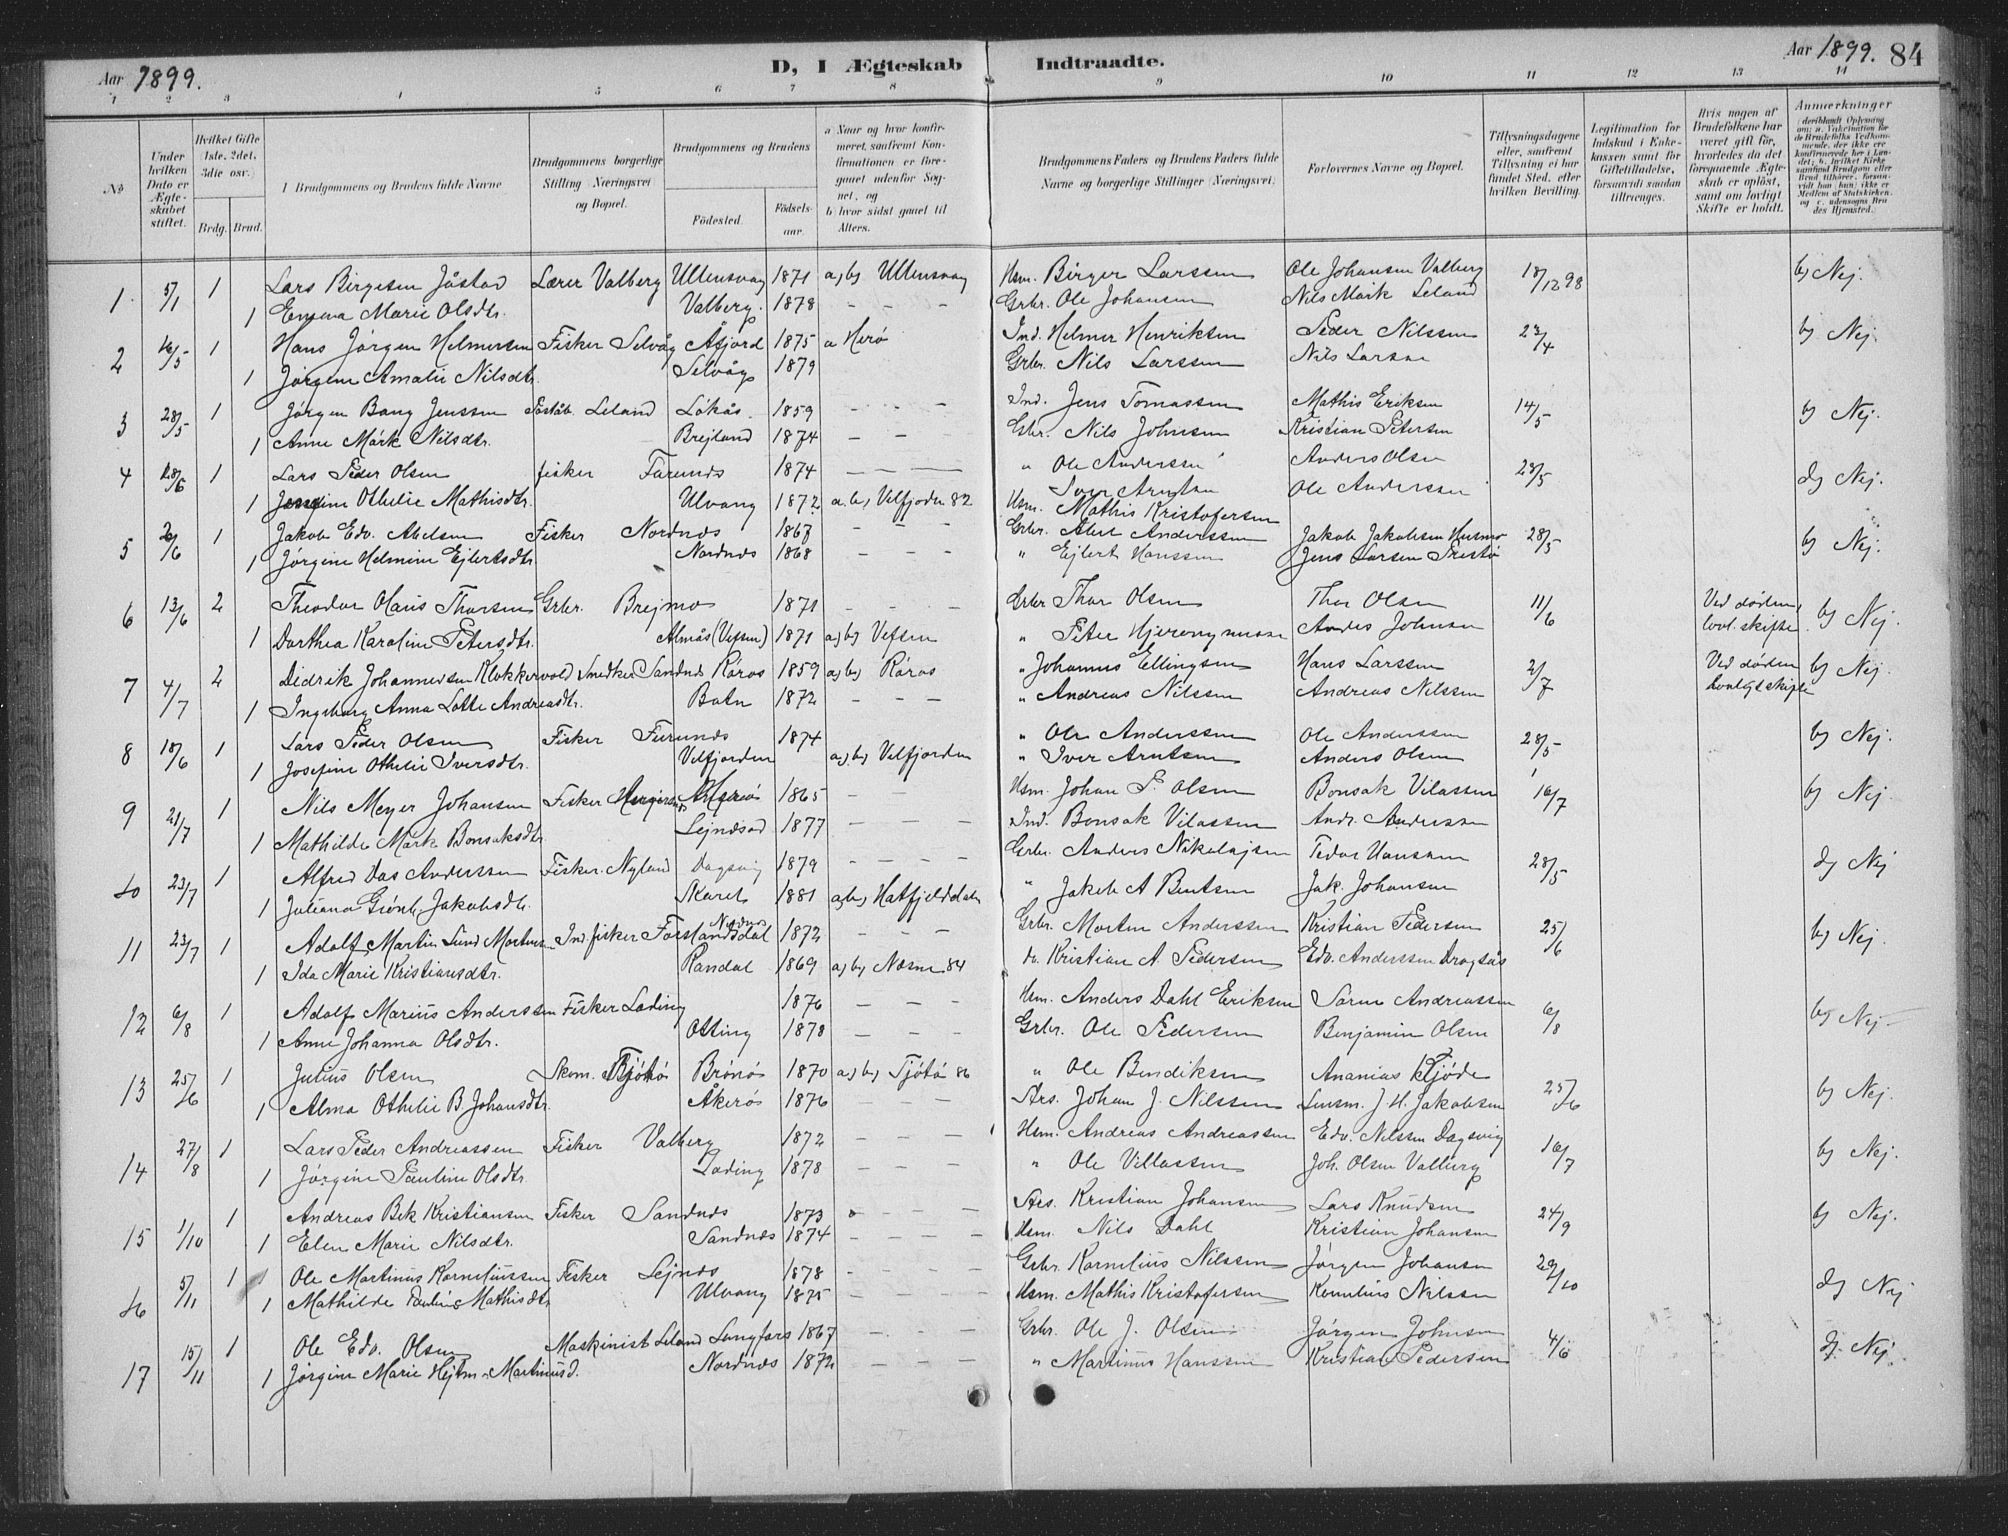 Aar 1899.
D, I Ægteskab Indtraadte.
Aar 1899. 84
1 2 3 4 5 6 7 8 9 10 11 12 13 14
No
Under hvilken Dato er Ægteskabet stiftet.
Hvilket Gifte 1ste, 2det, 3die osv.
Brdg. Brud.
Brudgommens og Brudens fulde Navne.
Brudgommens borgerlige Stilling (Næringsvei) og Bopæl.
Brudgommens og Brudens
Födested. Födselsaar.
a Naar og hvor konfirmeret, samfremt Konfirmationen er foregaaet udenfor Sognet, og
b) hvor sidst gaaet til Alters.
Brudgommens Faders og Brudens Faders fulde Navne og borgerlige Stillinger (Næringsvei).
Forlovernes Navne og Bopæl.
Tillysningsdagene eller, samfremt Tillysning ei har fundet Sted, efter hvilken Bevilling.
Legitimation for Indskud i Enkekassen samt for Giftetilladelse, forsaavidt saadan tiltrænges.
Hvis nogen af Brudefolkene har været gift før, hvorledes da det foregaaende Ægteskab er opløst, samt om lovligt Skifte er holdt.
Anmærkninger
1 5/1 1 Lars Birgesen Jåstad Lærer Valberg Ullensvag 1871 a, b, Ullensvag Hsm. Birger Larssen Ole Johansen Valberg 18/12 98 b, Nej.
1 Emma Marie Olsdtr. Valberg. 1878 - - - Grbr. Ole Johansen Nils Mørk Leland
2 16/5 1 Hans Jörgen Helmersen Fisker Selvåg Åfjord 1875 a Herö Ind. Helmer Henriksen Peder Nilssen 23/4 b, Nej.
1 Jörgine Amalie Nilsdtr. Selvåg 1879 Grbr. Nils Larssen Nils Larsen
3 28/5 1 Jörgen Bang Jenssen Leland Lökås 1859 - - - Ind. Jens Tomassen Mathis Eriksen 14/5 b, Nej.
1 Anne Mörk Nilsdtr. Brejland 1874 - - - Grbr. Nils Johnsen Kristian Petersen
4 18/6 1 Lars Peder Olsen fisker Furunds 1874 - - - " Ole Anderssen Anders Olsen 28/5 Nej.
Iver Arntsen
1 Othelie Mathisdtr. Ulvang 1872 a. b, Velfjorden 82 Hsm. Mathis Kristofersen Ole Anderssen
5 1 Jakob Edv. Abelsen Fisker Nordnds 1867 - - - Grbr. Abel Anderssen Jakob Jakobsen Husmo 28/5 b, Nej.
1 Jörgine Helmine Ejlertsdtr. Nordnds 1868 - - - " Ejlert Hanssen Jens Larsen
6 13/6 2 Theodor Olaus Thorsen Grbr. Brejmo 1871 - - - Grbr Thor Olsen Thor Olsen 11/6 Ved döden, lovl. skifte. b, Nej.
1 Dorthea Karoline Petersdtr. Almås (Vefsen) 1871 a, b, Vefsen " Peter Hjeronymusen Johnsen
7 4/7 2 Didrik Johannessen Klokkervold Sandnds Röros 1859 a, b, Röros " Johannes Ellingsen Hans Larssen 2/7 Ved döden lovligt skifte b, Nej.
1 Ingeborg Anna Lotte Andreasdtr. Botn 1872 - - " Andreas Nilssen Andreas Nilssen
8 18/6 1 Lars Peder Olsen Fisker Furunds 1874 " Ole Anderssen Ole Anderssen 28/5 b, Nej.
1 Josefine Othelie Iversdtr. Velfjorden a, b, Velfjorden " Iver Arntsen Anders Olsen
9 21/7 1 Nils Meyer Johansen Fisker 1865 - - Hsm. Johan P. Olsen Bonsak Vilassen 16/7 b, Nej.
1 Mathilde Mørk Bonsaksdtr. 1877 - - - Ind. Bonsak Vilassen Andr. Anderssen
10 23/7 1 Alfred Das Anderssen Fisker. Nyland Dagsvig 1879 - - - Grbr. Anders Nikolajsen Tedor Hanssen 28/5 Nej
1 Juliana Grönb. Jakobsdtr. Skaret 1881 a, b, Hatfjelddalen " Jakob A Bentsen Jak. Johansen
11 23/7 1 Adolf Martin Lund Mortensen Ind. fisker Forslandsdal Nordnds 1872 - - - Grbr. Morten Anderssen Kristian Pedersen 25/6 b, Nej.
1 Ida Marie Kristiansdtr. Randal 1869 a, b, Næsne 84 do. Kristian A. Pedersen Edv. Anderssen Dragsås
12 6/8 1 Adolf Marius Anderssen Fisker Lading 1876 - - - Hsm. Anders Dahl Eriksen Sören Andreassen 6/8 b, Nej
1 Anne Johanna Olsdtr. Otting 1878 - - - Grbr. Ole Pedersen Benjamin Olsen
13 25/6 1 Julius Olsen Skom. Tjötö Brönö 1870 a, b, Tjötö 86 " Ole Bendiksen Ananias 25/6 b, Nej.
1 Alma Othelie B. Johansdtr. Åkerö 1876 - - - Johan J. Nilssen Lensm. J. H. Jakobsen
14 27/8 1 Lars Peder Andreassen Fisker Valberg 1872 - - - Hsm. Andreas Andreassen Edv. Nilssen Dagsvig 16/7 b, Nej.
1 Jörgine Pauline Olsdtr. Lading 1878 - - - " Ole Villassen Joh. Olsen Valberg
15 1/10 1 Andreas Bek Kristiansen Fisker Sandnds 1873 - - - Kristian Johansen Lars Knudsen 24/9 b, Nej.
1 Elen Marie Nilsdtr. Sandnds 1874 - - - Hsm. Nils Dahl Kristian Johansen
16 5/11 1 Ole Martinus Korneliussen Fisker Lejnds 1878 - - - Grbr. Kornelius Nilssen Jörgen Johansen 29/10 Nej
1 Mathilde Pauline Mathisdtr. Ulvang 1875 - - - Hsm. Mathis Kristofersen Kornelius Nilssen
17 15/11 1 Ole Edv. Olsen Maskinist Leland Langfors 1867 - - - Grbr. Ole J. Olsen Jörgen Johnsen 4/6 Nej.
1 Jörgine Marie Hejtm. Martinusd. Nordnds 1872 - - - " Martinus Hanssen Kristian Pedersen